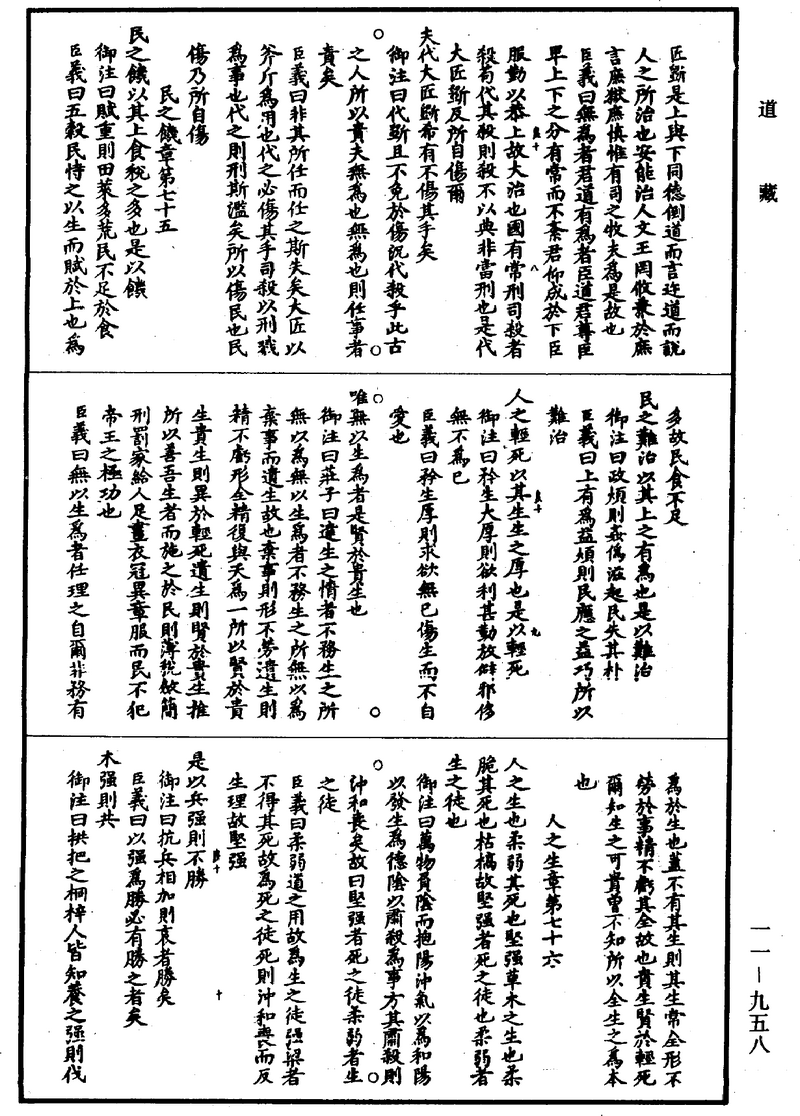 道藏
匠斲是上與下同德倒道而言迕道而說
人之所治也安能治人文王罔攸兼於庶
言庶獄庶慎惟有司之牧夫為是故也
臣義曰無為者君道有為者臣道君尊臣
卑上下之分有常而不紊君仰成於下臣
服勤以恭上故大治也國有常刑司殺者
殺苟代其殺則殺不以典非當刑也是代
大匠斲反所自傷爾
夫代大匠斲希有不傷其手矣
御注曰代斲且不免於傷況代殺乎此古
之人所以貴夫無為也無為也則任事者
責矣
臣義曰非其所任而任之斯失矣大匠以
斧斤為用也代之必傷其手司殺以刑戮
為事也代之則刑斯濫矣所以傷民也民
傷乃所自傷
民之饑章第七十五
民之饑以其上食稅之多也是以饑
御注曰賦重則田萊多荒民不足於食
臣義曰五穀民恃之以生而賦於上也為
多故民食不足
民之難治以其上之有為也是以難治
御注曰政煩則姦偽滋起民失其朴
臣義曰上有為益煩則民應之益巧所以
難治
人之輕死以其生生之厚也是以輕死
御注曰矜生大厚則欲利甚勤放僻邪侈
無不為已
臣義曰矜生厚則求欲無已傷生而不自
愛也
唯無以生為者是賢於貴生也
御注曰莊子曰達生之情者不務生之所
無以為無以生為者不務生之所無以為
棄事而遺生故也棄事則形不勞遺生則
精不虧形全精復與天為一所以賢於貴
生貴生則異於輕死遺生則賢於貴生推
所以善吾生者而施之於民則薄稅斂簡
刑罰家給人足畫衣冠異章服而民不犯
帝王之極功也
臣義曰無以生為者任理之自爾非務有
為於生也蓋不有其生則其生常全形不
勞於事精不虧其全故也貴生賢於輕死
爾知生之可貴曾不知所以全生之為本
也
人之生章第七十六
人之生也柔弱其死也堅強草木之生也柔
脆其死也枯槁故堅強者死之徒也柔弱者
生之徒也
御注曰萬物負陰而抱陽沖氣以為和陽
以發生為德陰以肅殺為事方其肅殺則
沖和喪矣故曰堅強者死之徒柔弱者生
之徒
臣義曰柔弱道之用故為生之徒強梁者
不得其死故為死之徒死則沖和喪而反
生理故堅強
是以兵強則不勝
御注曰抗兵相加則哀者勝矣
臣義曰以強為勝必有勝之者矣
木強則共
御注曰拱把之桐梓人皆知養之強則伐
一一—九五八